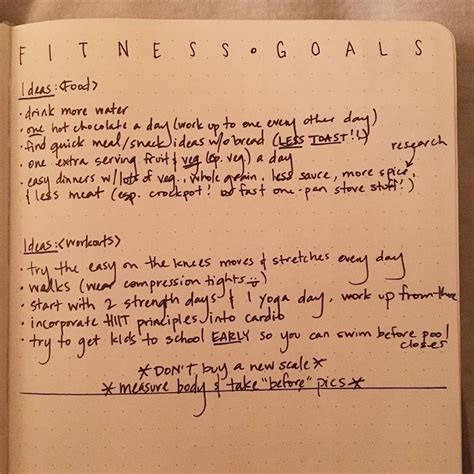 FITNESS • GOALS
Ideas: <Food>
• drink more water
• one hot chocolate a day (work up to one every other day)
• find quick meal/snack ideas w/o bread (LESS TOAST!!)
• one extra serving fruit & veg (esp. veg.) a day
research
• easy dinners w/ lots of veg., whole grain, less sauce, more spice,
& less meat (esp. crockpot! fast one-pan stove stuff!)
Ideas: <Workouts>
• try the easy on the knees moves & stretches every day
• walks (wear compression tights :))
• start with 2 strength days & 1 yoga day, work up from there
• incorporate HIIT principles into cardio
• try to get kids to school EARLY so you can swim before pool
closes
* DON'T buy a new scale *
* measure body & take "before" pics *